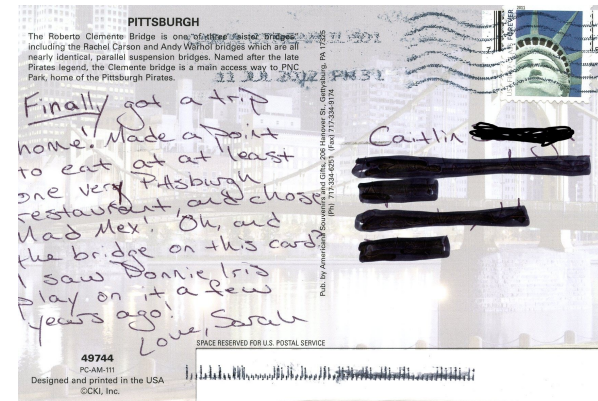 PITTSBURGH
The Roberto Clemente Bridge is one of three "sister bridges"
including the Rachel Carson and Andy Warhol bridges which are all
nearly identical, parallel suspension bridges. Named after the late
Pirates legend, the Clemente bridge is a main access way to PNC
Park, home of the Pittsburgh Pirates.
11 JUL 2022 PM 3 1
FOREVER
Finally got a trip
home! Made a point
to eat at at least
one very Pittsburgh
restaurant, and chose
Mad Mex! Oh, and
the bridge on this card?
I saw Donnie Iris
play on it a few
years ago!
Love, Sarah
Caitlin
Pub. by Americana Souvenirs and Gifts, 206 Hanover St., Gettysburg, PA 17325
(Ph) 717-334-6251 (Fax) 717-334-9174
SPACE RESERVED FOR U.S. POSTAL SERVICE
49744
PC-AM-111
Designed and printed in the USA
©CKI, Inc.